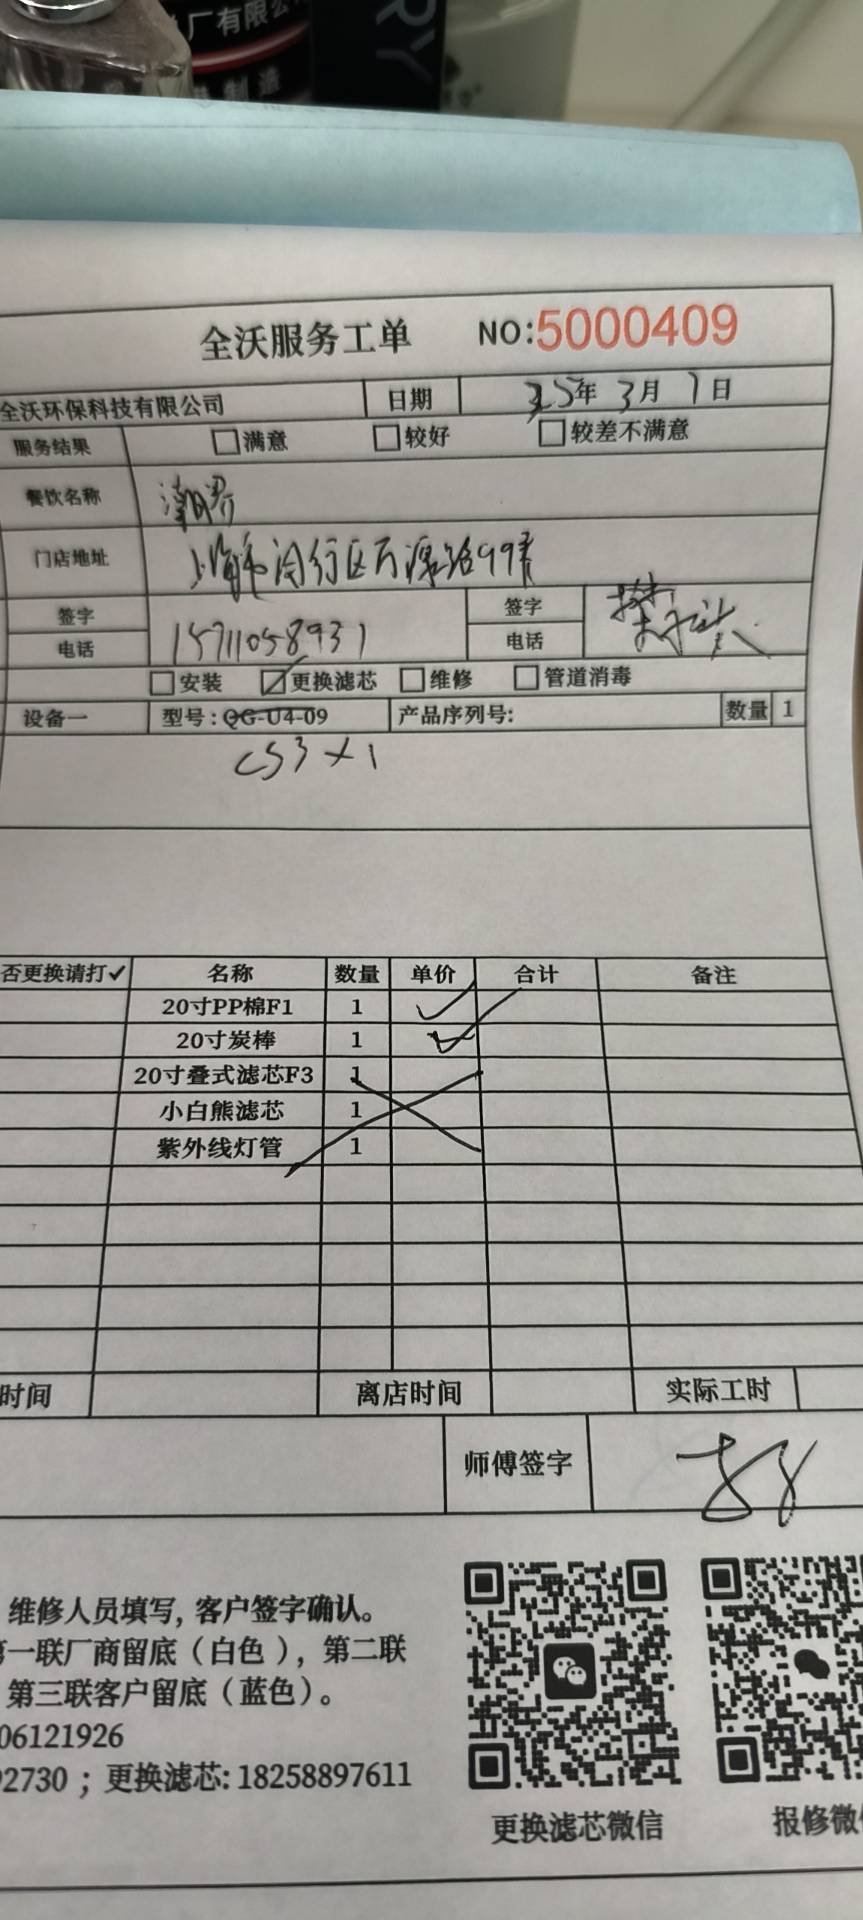 厂有限公
制造
RY
全沃服务工单 NO:5000409
全沃环保科技有限公司 日期 25年 3月 1日
服务结果 □满意 □较好 □较差不满意
餐饮名称 潮界
门店地址 上海市闵行区万源路99号
签字 签字
电话 15711058931 电话
□安装 ☑更换滤芯 □维修 □管道消毒
设备一 型号: QG-U4-09 产品序列号: 数量 1
CS3 × 1
否更换请打✓ 名称 数量 单价 合计 备注
20寸PP棉F1 1 ✓
20寸炭棒 1 ✓
20寸叠式滤芯F3 1
小白熊滤芯 1
紫外线灯管 1
时间 离店时间 实际工时
师傅签字
维修人员填写, 客户签字确认。
第一联厂商留底（白色），第二联
第三联客户留底（蓝色）。
06121926
2730 ；更换滤芯: 18258897611
更换滤芯微信 报修微信